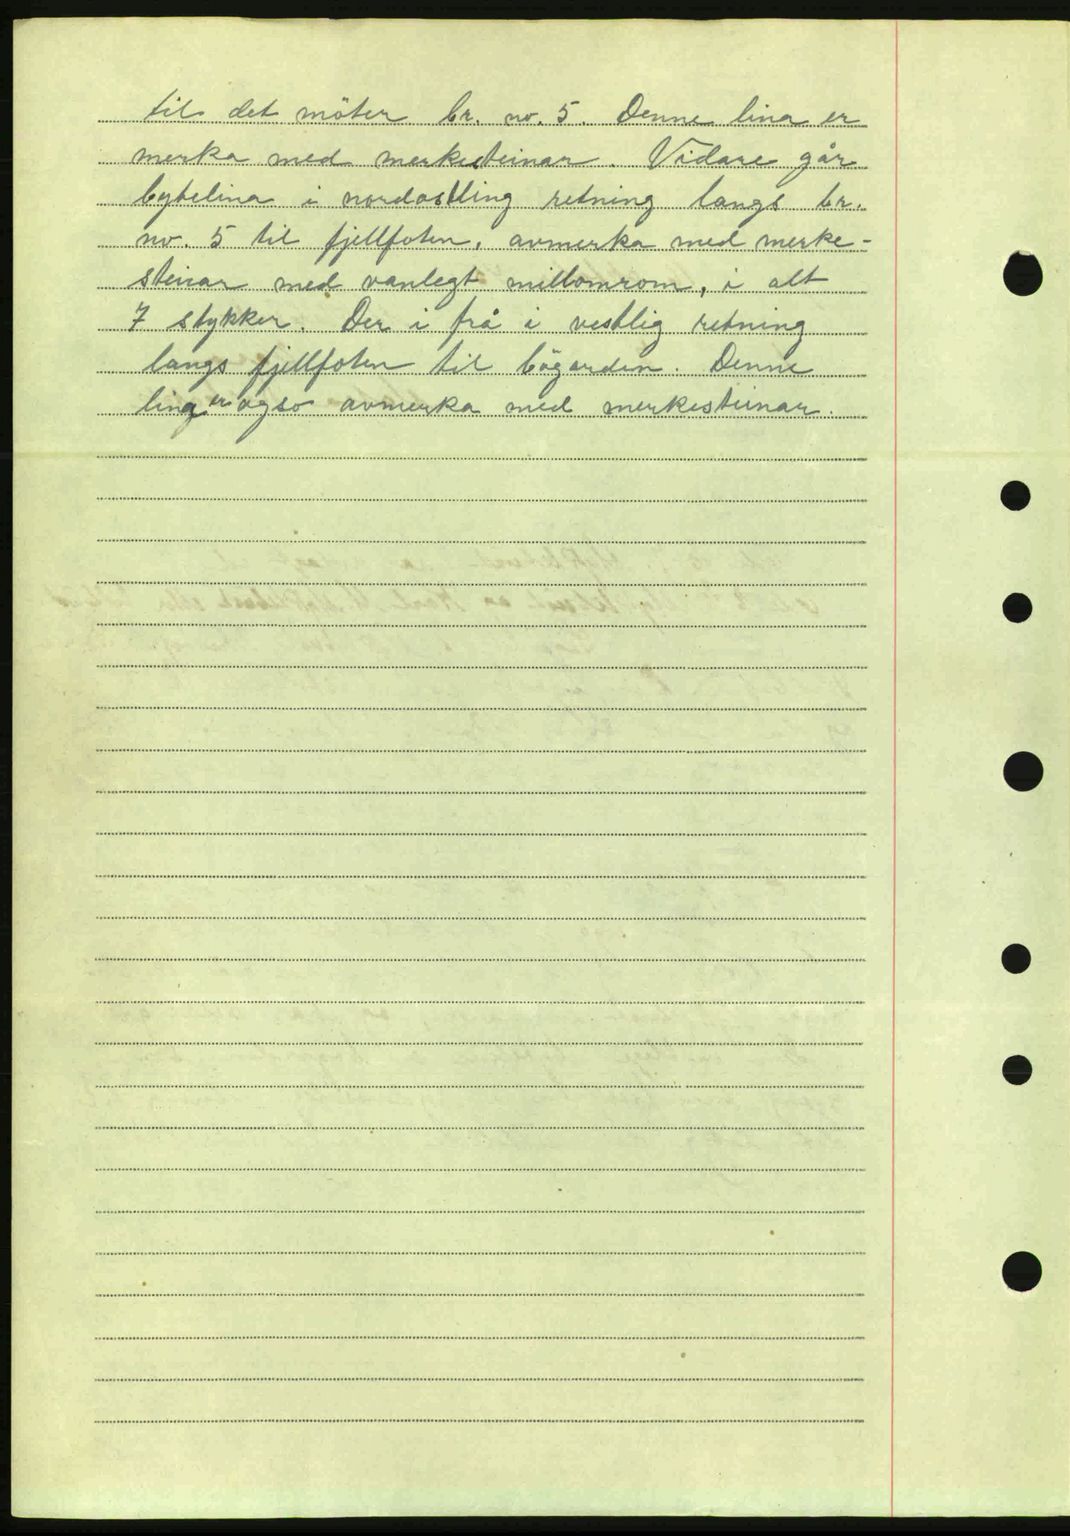 til det möter br. no. 5. Denne lina er
merka med merkesteinar. Vidare går
bytelina i nordostling retning langs br.
no. 5 til fjellfoten, avmerka med merke-
steinar med vanlegt millomrom, i alt
7 stykker. Der i frå i vestlig retning
langs fjellfoten til bögarden. Denne
lina er ogso avmerka med merkesteinar.